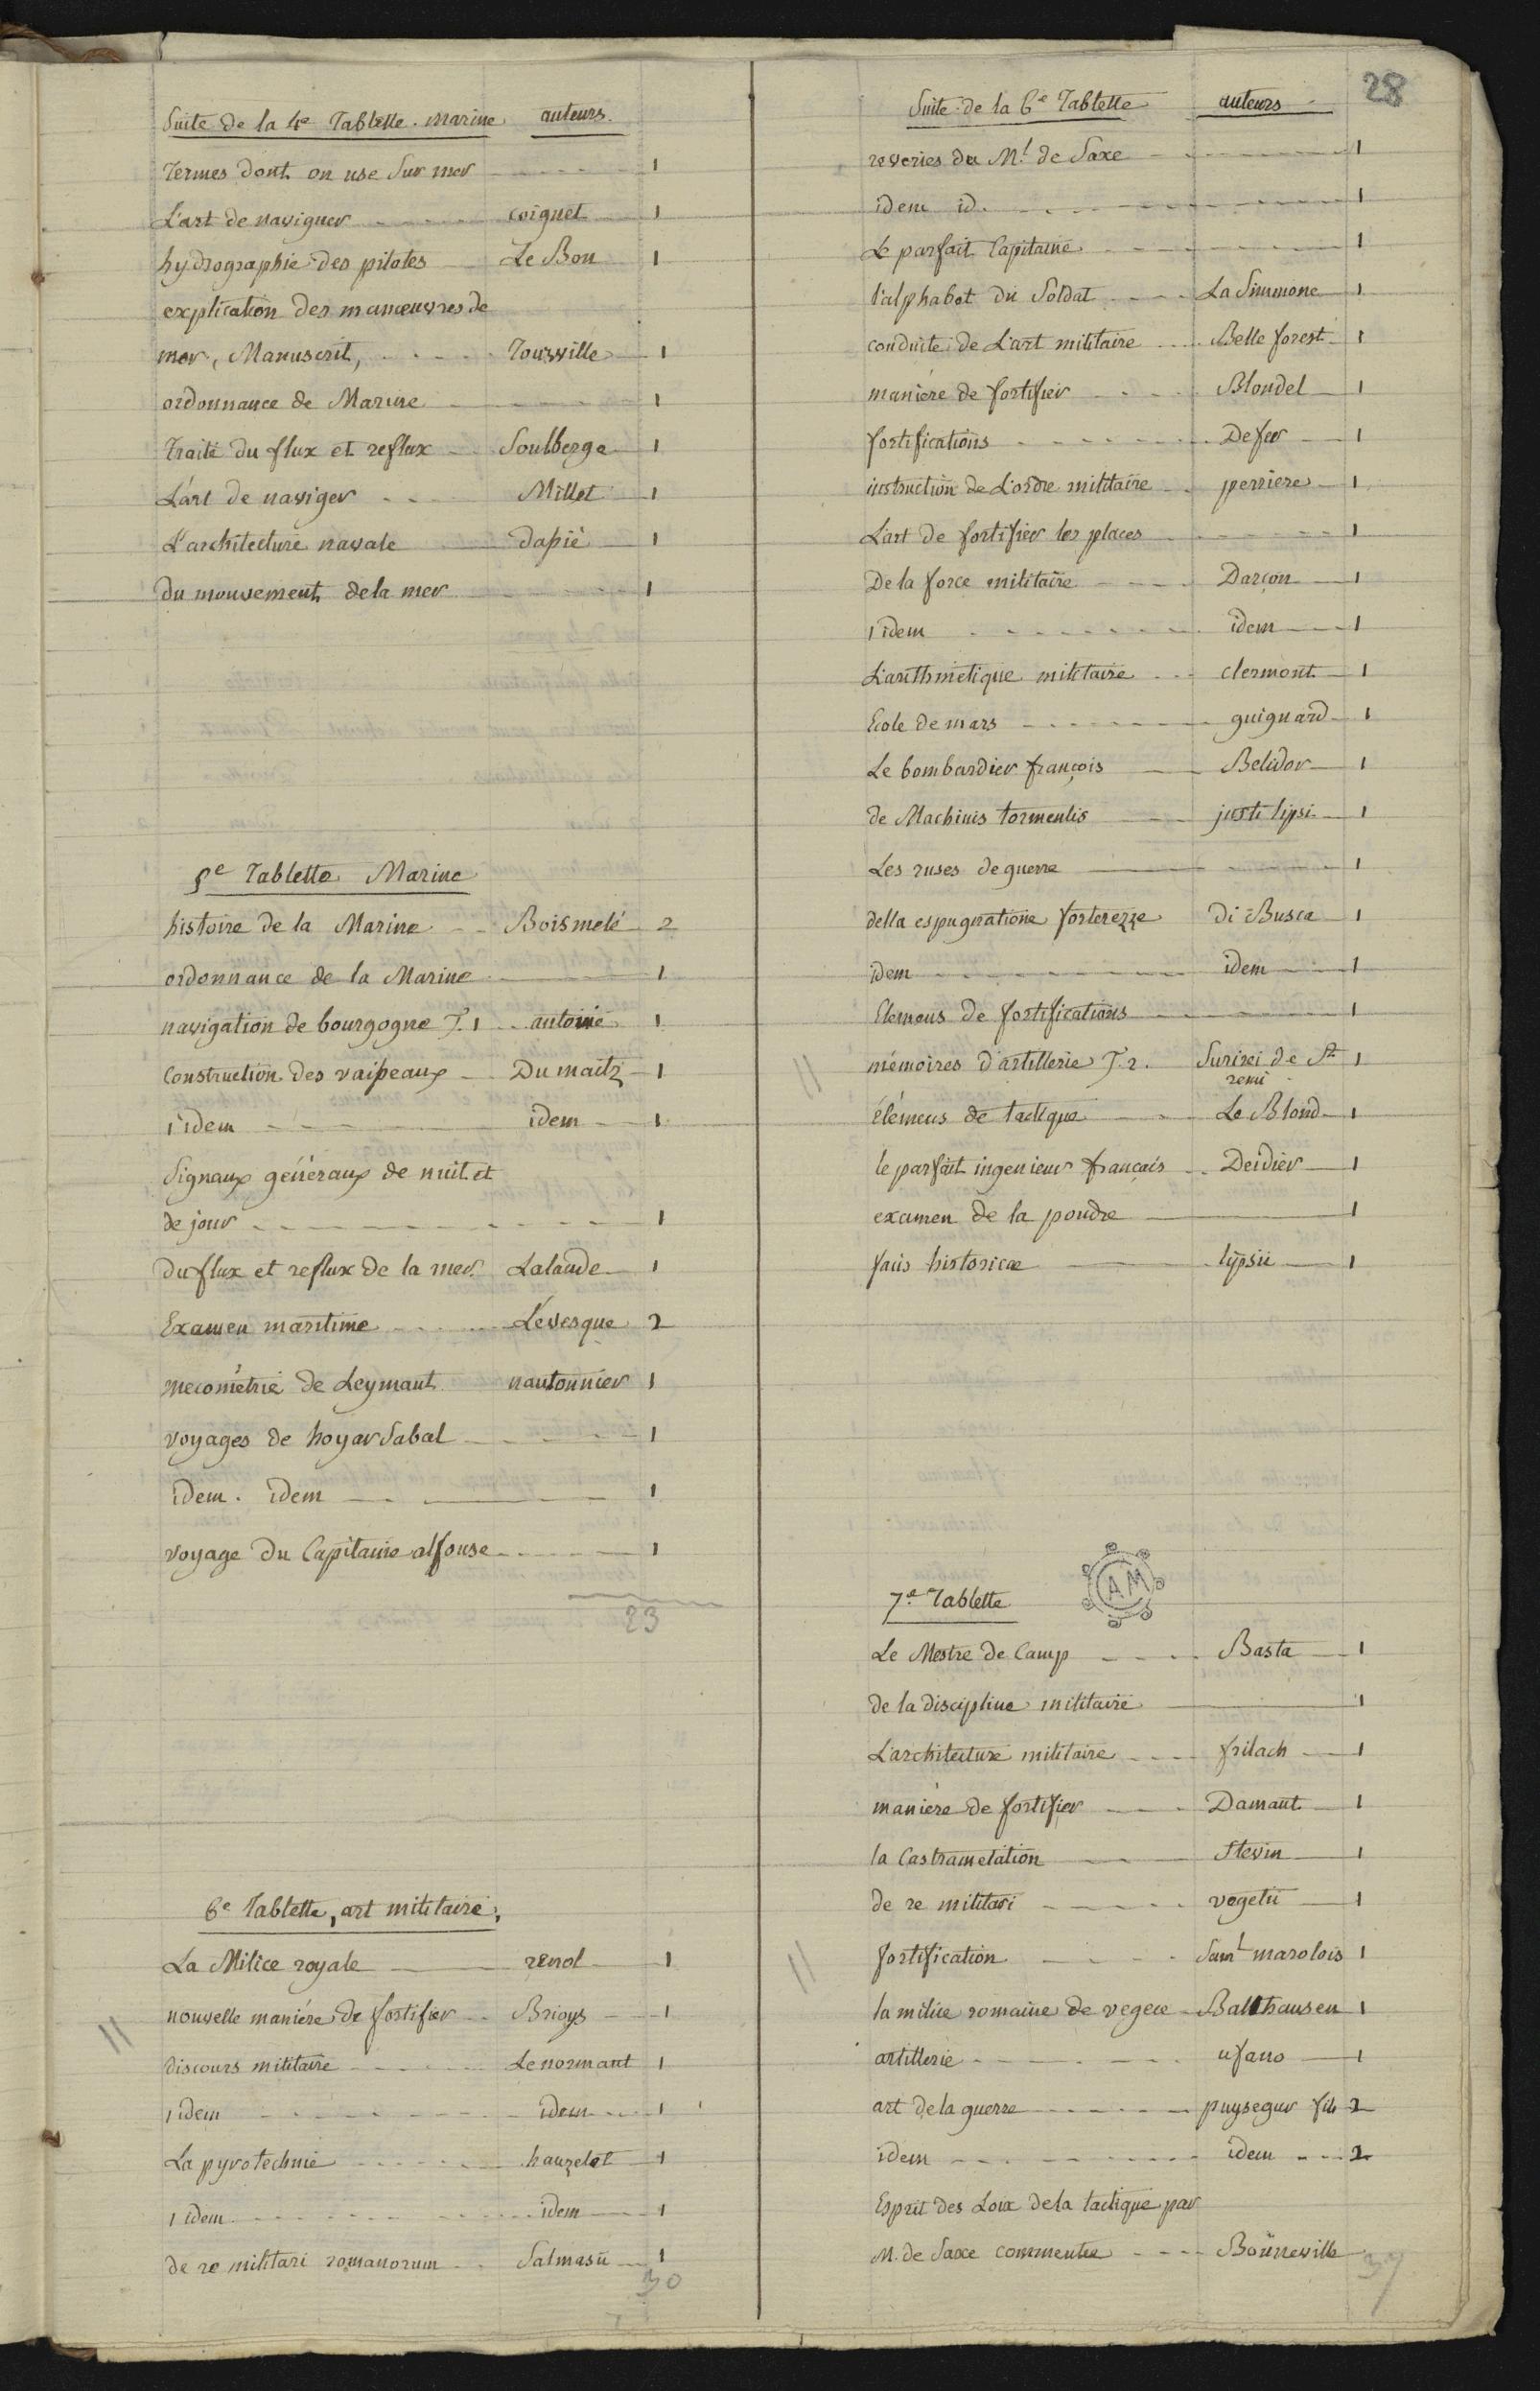 Suite de la 4e Tablette. Marine auteurs.
Termes dont on use Sur mer 1
L'art de naviguer coignet 1
hydrographie des pilotes Le Bon 1
explication des manœuvres de
mer, Manuscrit, Tourville 1
ordonnance de Marine 1
traité du flux et reflux Soulberge 1
L'art de naviger Millet 1
L'architecture navale dassié 1
Du mouvement de la mer 1
5e Tablette Marine
histoire de la Marine Boismelé 2
ordonnance de la Marine 1
navigation de bourgogne T. 1 antoine 1
Construction des vaisseaux Du maitz 1
1 idem idem 1
Signaux généraux de nuit et
de jour 1
Du flux et reflux de la mer Lalande 1
Examen maritime Lévesque 2
mecométrie de Leymant nautonnier 1
voyages de hoyarsabal 1
idem. idem 1
voyage du Capitaine alfonse 1
23
6e Tablette, art militaire,
La Milice royale renol 1
nouvelle maniére de fortifier Brioys 1
discours militaire Le normant 1
1 idem idem 1
La pyrotechnie hanzelet 1
1 idem idem 1
de re militari romanorum Salmasii 1
30
28
Suite de la 6e Tablette auteurs
reveries du Ml. de Saxe 1
idem id. 1
Le parfait Capitaine 1
l'alphabet du Soldat La Simmone 1
conduite de L'art militaire Belle forest 1
maniére de fortifier Blondel 1
fortifications De fer 1
instruction de L'ordre militaire perriere 1
L'art de fortifier les places 1
De la force militaire Darçon 1
1 idem idem 1
L'arithmétique militaire clermont 1
Ecole de mars guignard 1
Le bombardier françois Belidor 1
de Machinis tormentis justi lipsi 1
Les ruses de guerre 1
della espugnatione fortrezze Di Busca 1
idem idem 1
Elemens de fortifications 1
mémoires d'artillerie T. 2. Surirei de St
remi 1
élémens de tactique Le Blond 1
le parfait ingenieur français Deidier 1
examen de la poudre 1
facis historicæ lypsii 1
AM
7e Tablette
Le Mestre de Camp Basta 1
de la discipline militaire 1
L'architecture militaire fritach 1
maniére de fortifier Damant 1
la Castramelation Stevin 1
de re militari vegetii 1
fortification Saml marolois 1
la milice romaine de vegece Balthausen 1
artillerie ufano 1
art de la guerre puysegur fils 2
idem idem 2
Esprit des Loix de la tactique par
M. de Saxe commentée Bonneville
37